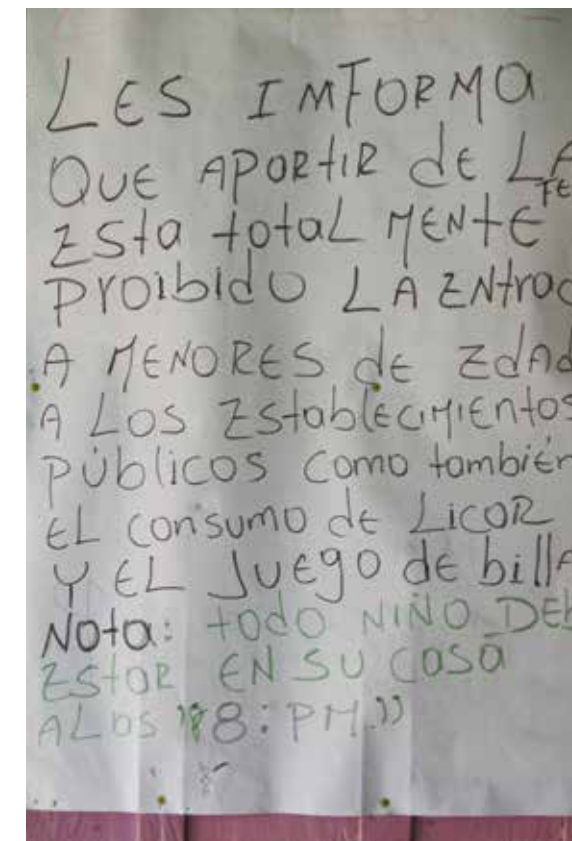 LES IMFORMA
QUE APORtIR dE LA
FE
ESta totaL MENtE
PROibidO LA ENtrad
A MENORES dE EdAd
A LOS EStablEciMiENtos
PÚblicos como también
EL consumo dE LicoR
Y EL JUEgo dE billA
Nota: todo NIÑO DEb
EStaR EN SU casa
A LAS "8: PM."